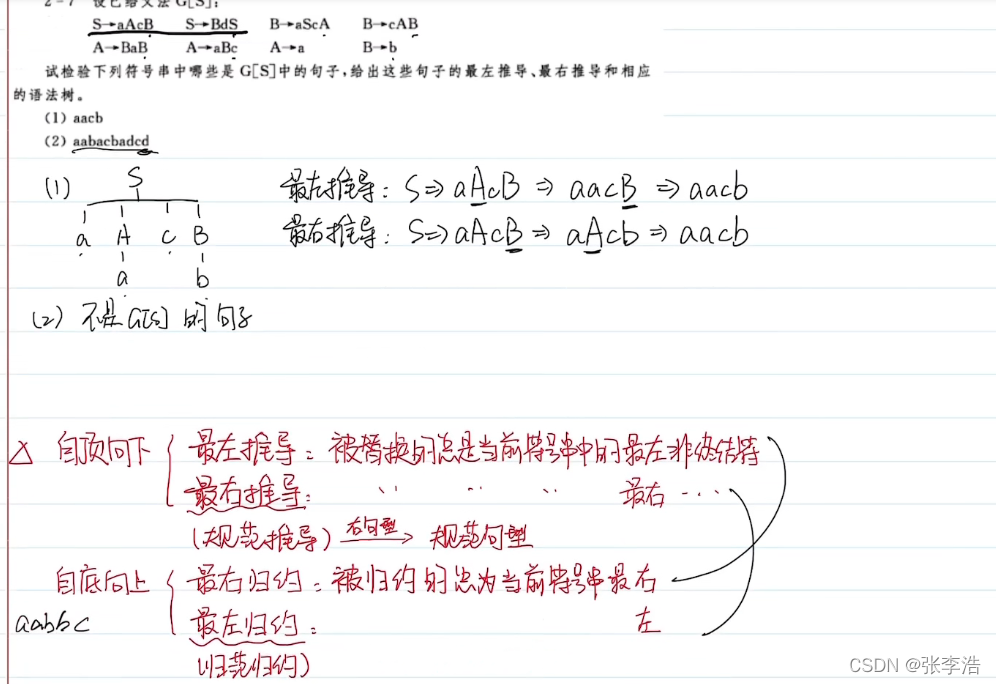 2-7 设已给文法 G[S]:
S→aAcB S→BdS B→aScA B→cAB
A→BaB A→aBc A→a B→b
试检验下列符号串中哪些是 G[S]中的句子,给出这些句子的最左推导、最右推导和相应
的语法树。
(1) aacb
(2) aabacbadcd
(1) S 最左推导: S⇒aAcB ⇒ aacB ⇒ aacb
a A c B 最右推导: S⇒aAcB ⇒ aAcb ⇒ aacb
a b
(2) 不是G[S] 的句子
△ 自顶向下 { 最左推导: 被替换的总是当前符号串中的最左非终结符
最右推导: 〃 〃 〃 最右 ...
(规范推导) 右句型→ 规范句型
自底向上 { 最右归约: 被归约的总为当前符号串最右
aabbc 最左归约: 左
(归范归约)
CSDN @张李浩